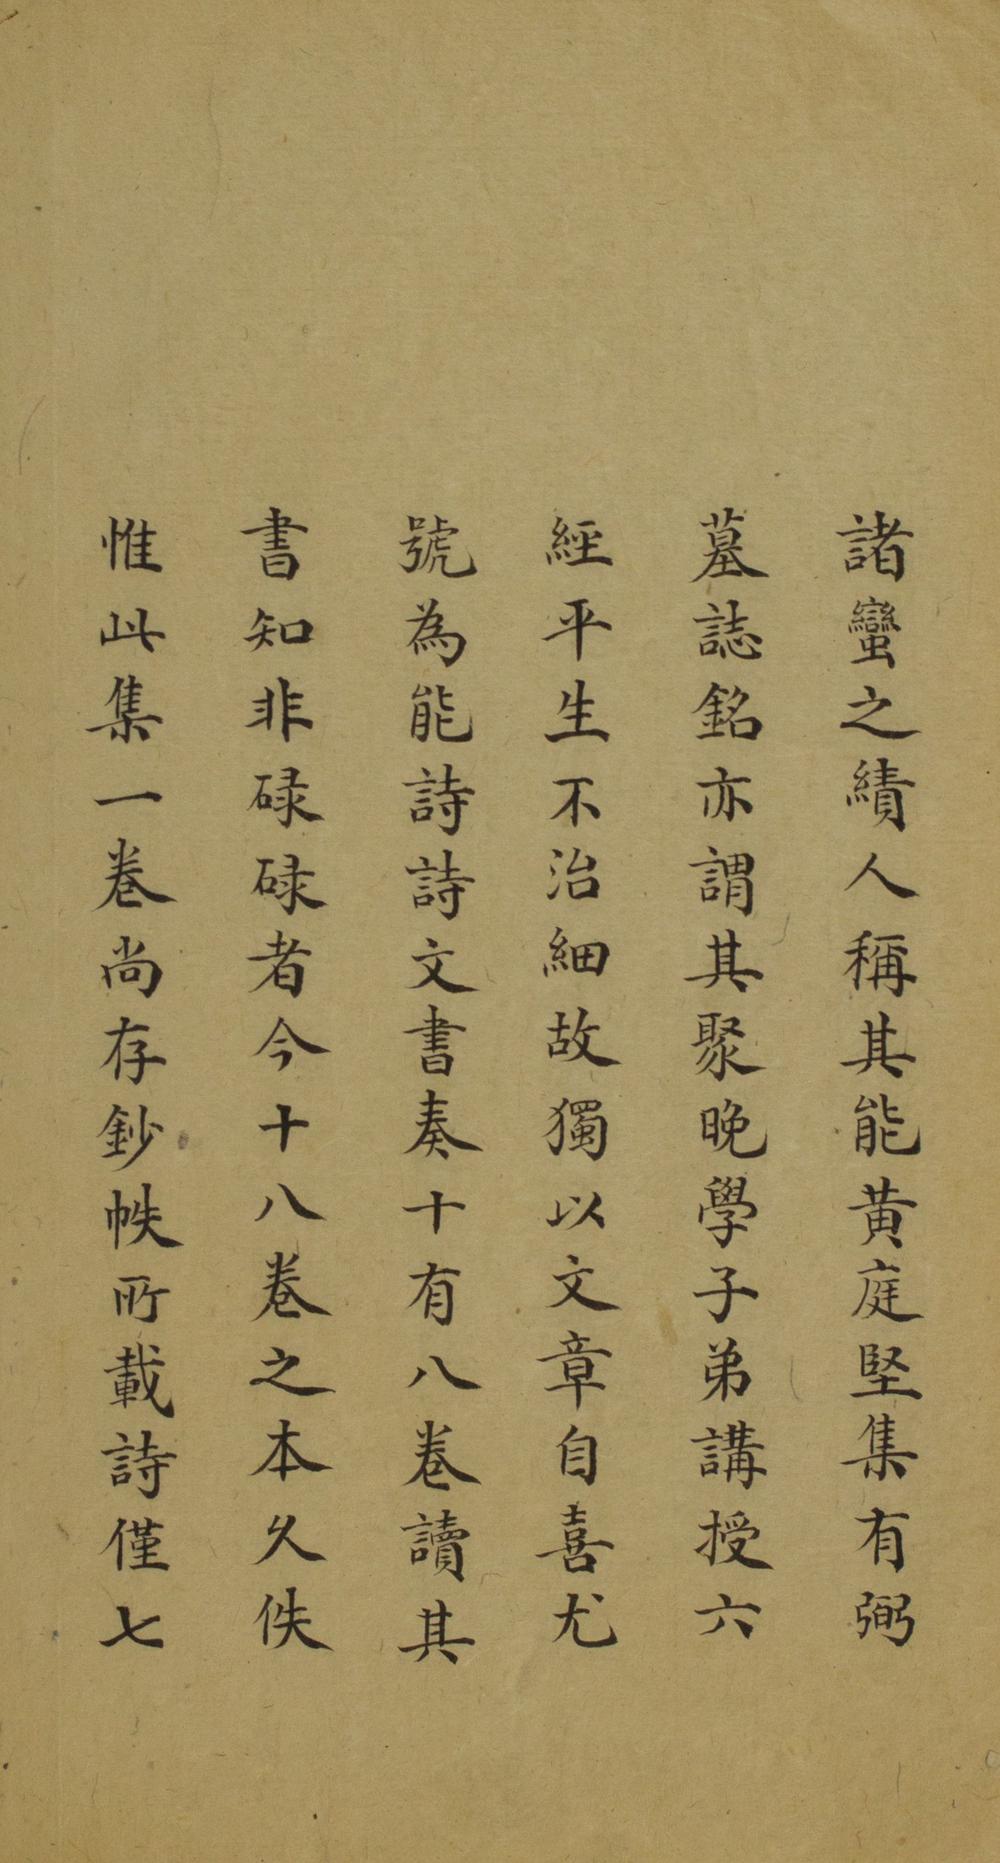 諸蠻之績人稱其能黄庭堅集有弼
墓誌銘亦謂其聚晚學子弟講授六
經平生不治細故獨以文章自喜尤
號為能詩詩文書奏十有八卷讀其
書知非碌碌者今十八卷之本久佚
惟此集一卷尚存鈔帙所載詩僅七